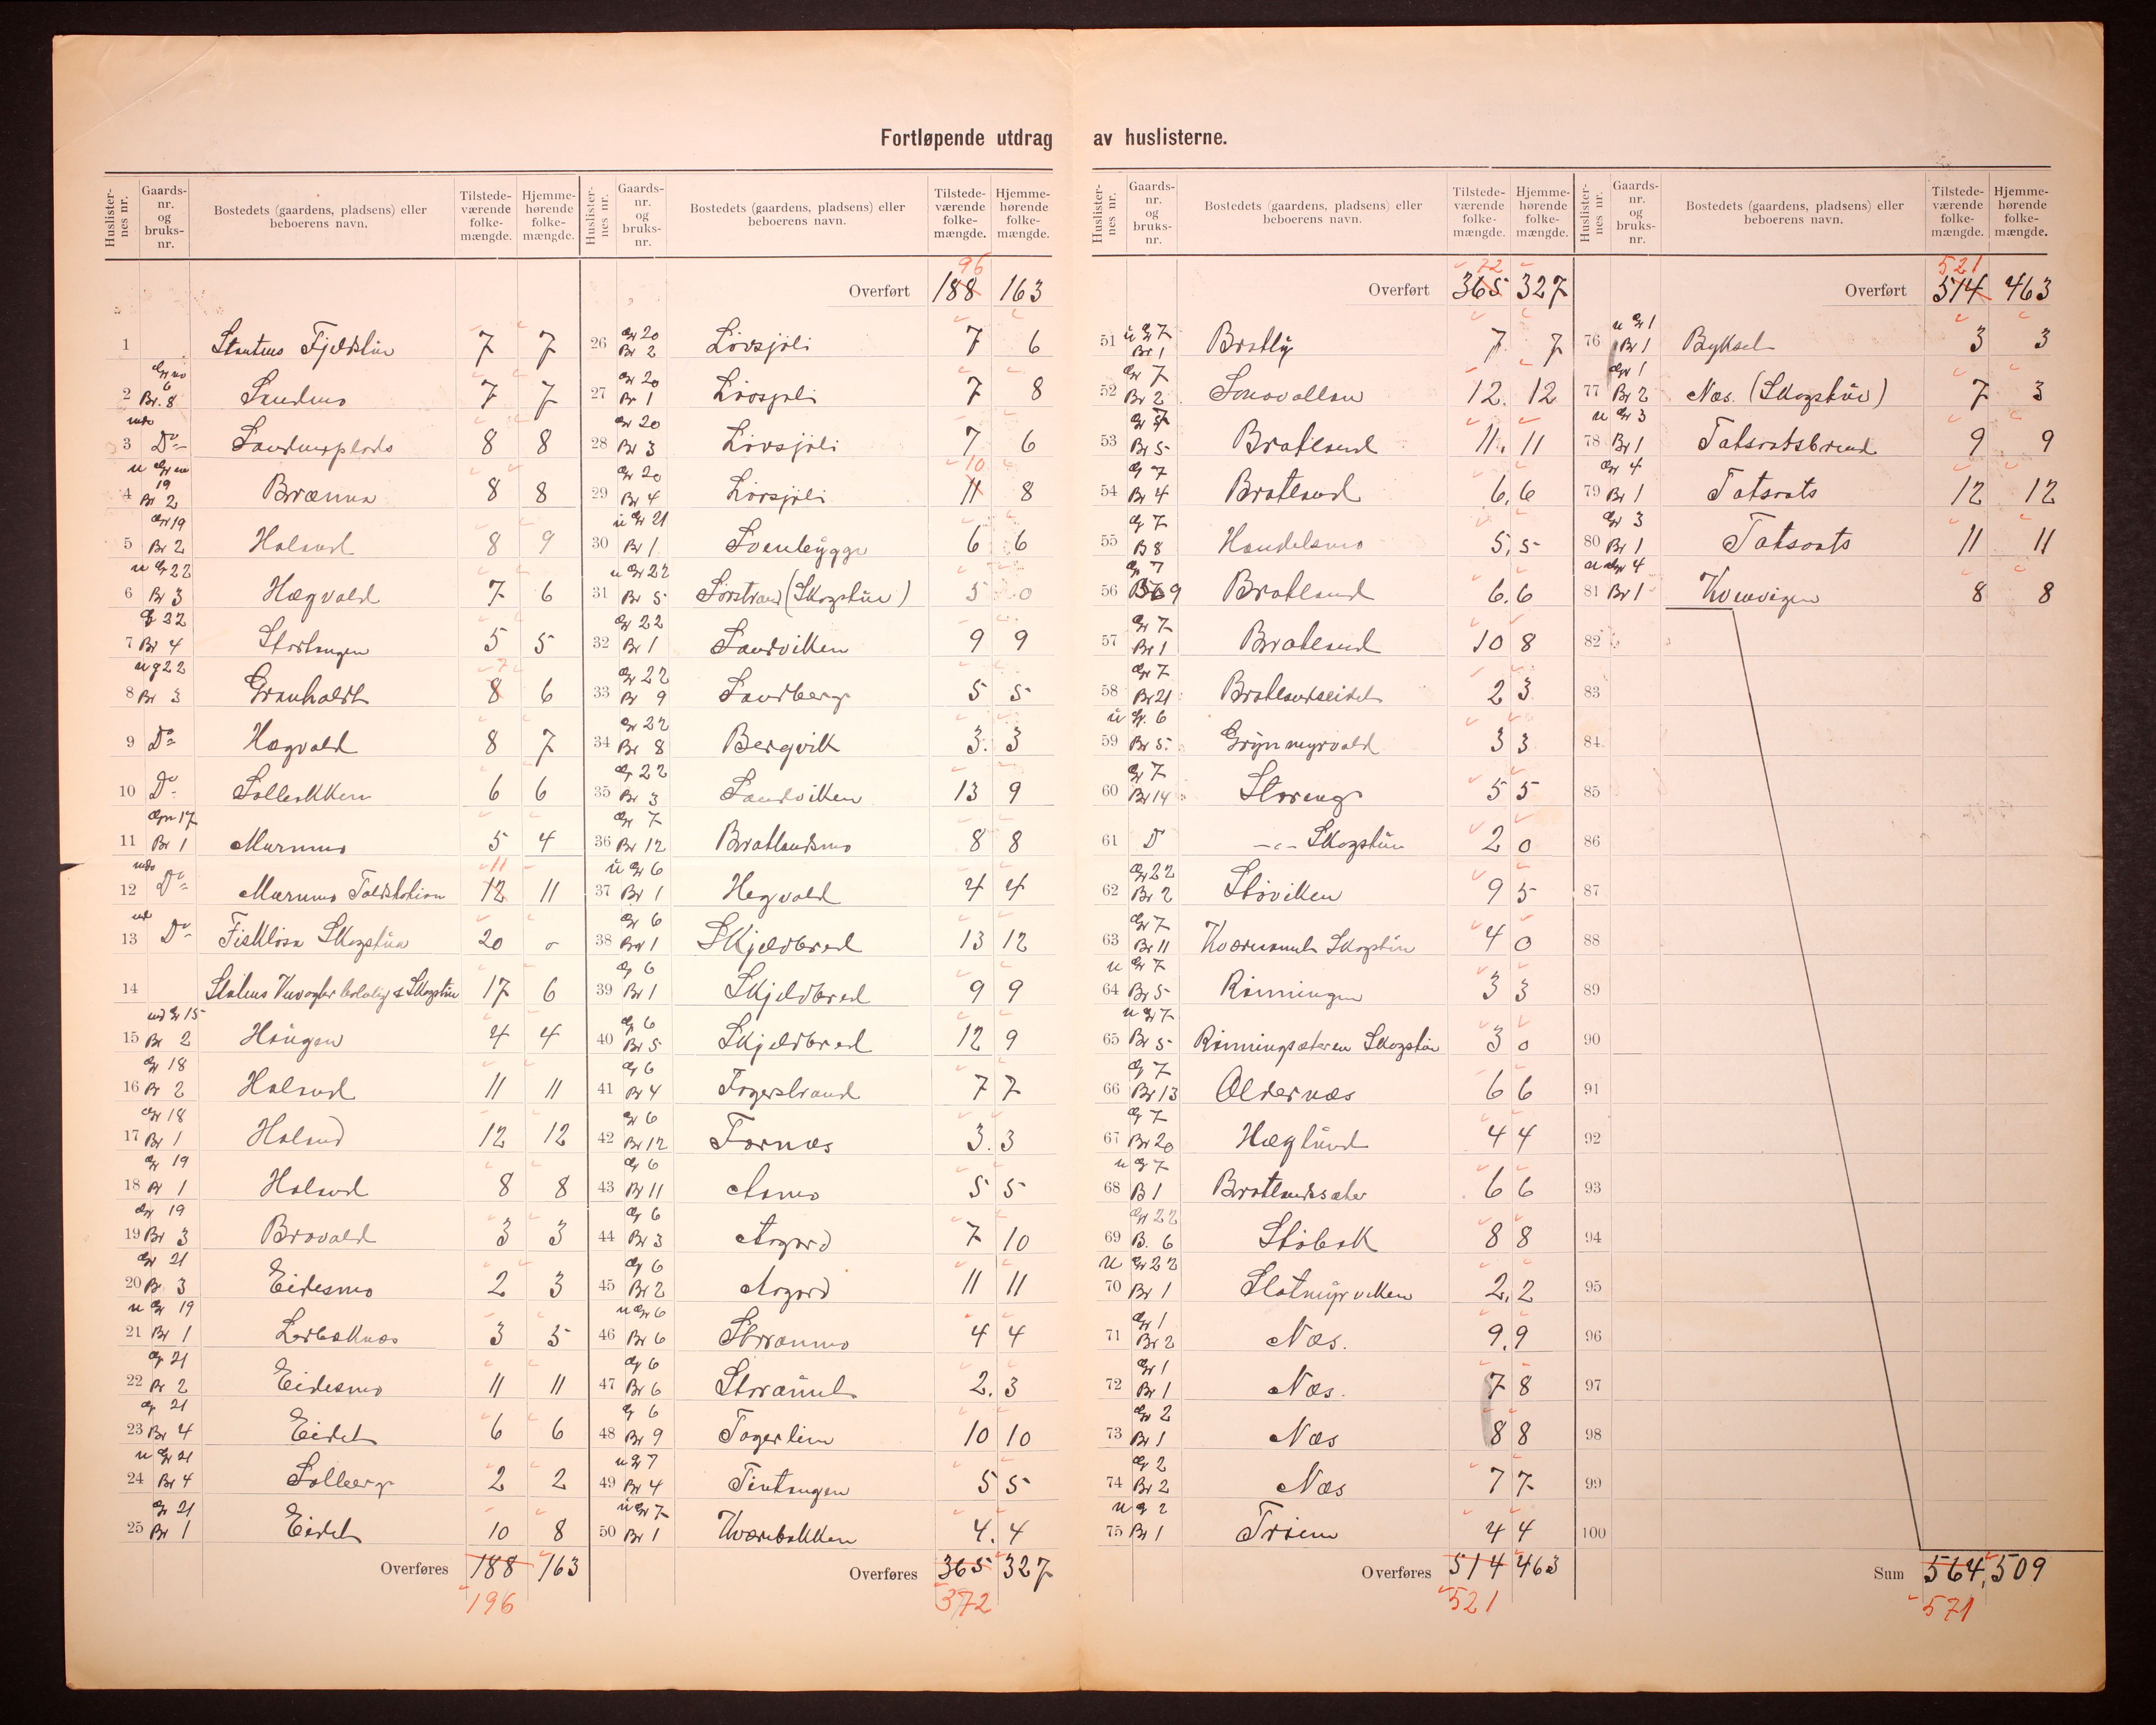 Fortløpende utdrag av huslisterne.
Huslisternes nr. Gaardsnr. og bruksnr. Bostedets (gaardens, pladsens) eller beboerens navn. Tilstedeværende folkemængde. Hjemmehørende folkemængde.
96
Overført 188 163
1 Statens Fjeldstue 7 7
2 Gr no 6 Br. 8 Sandmo 7 7
3 undr Do Sandmoplads 8 8
4 u Gr no 19 Br 2 Brænna 8 8
5 Gr 19 Br 2 Haland 8 9
6 u Gr 22 Br 3 Hægvald 7 6
7 G 22 Br 4 Stortangen 5 5
8 u g 22 Br 3 Granholdt 8 7 6
9 Do Hægvald 8 7
10 Do Solbakken 6 6
11 Grn 17 Br 1 Murumo 5 4
12 undr Do Murumo Toldstation 12 11 11
13 und Do Fiskløsa Skogstua 20 0
14 Statens Skogstue 17 6
15 und Gr 15 Br 2 Haugen 4 4
16 Gr 18 Br 2 Haland 11 11
17 Gr 18 Br 1 Haland 12 12
18 Gr 19 Br 1 Haland 8 8
19 Gr 19 Br 3 Bravald 3 3
20 Gr 21 Br 3 Eidesmo 2 3
21 u Gr 19 Br 1 Lerbaknæs 3 5
22 Gr 21 Br 2 Eidesmo 11 11
23 Gr 21 Br 4 Eidet 6 6
24 u Gr 21 Br 4 Solberg 2 2
25 Gr 21 Br 1 Eidet 10 8
Overføres 188 163
196
Huslisternes nr. Gaardsnr. og bruksnr. Bostedets (gaardens, pladsens) eller beboerens navn. Tilstedeværende folkemængde. Hjemmehørende folkemængde.
26 Gr 20 Br 2 Løvsjøli 7 6
27 Gr 20 Br 1 Løvsjøli 7 8
28 Gr 20 Br 3 Løvsjøli 7 6
29 Gr 20 Br 4 Løvsjøli 11 10 8
30 u Gr 21 Br 1 Svenbygge 6 6
31 u Gr 22 Br 5 Sørstrand (Skogstue) 5 0
32 Gr 22 Br 1 Sandviken 9 9
33 Gr 22 Br 9 Sandberg 5 5
34 Gr 22 Br 8 Bergvik 3. 3
35 Gr 22 Br 3 Sandviken 13 9
36 Gr 7 Br 12 Bratlandsmo 8 8
37 u Gr 6 Br 1 Hegvald 4 4
38 Gr 6 Br 1 Skjeldbred 13 12
39 G 6 Br 1 Skjeldbred 9 9
40 G 6 Br 5 Skjeldbred 12 9
41 G 6 Br 4 Fagerstrand 7 7
42 Gr 6 Br 12 Fornæs 3. 3
43 G 6 Br 11 Aamo 5 5
44 G 6 Br 3 Aagard 7 10
45 G 6 Br 2 Aagard 11 11
46 u Gr 6 Br 6 Straanmo 4 4
47 G 6 Br 6 2. 3
48 G 6 Br 9 Fagerlien 10 10
49 u G 7 Br 4 Tintangen 5 5
50 u Gr 7 Br 1 Kværnbakken 4. 4
Overføres 365 327
372
Huslisternes nr. Gaardsnr. og bruksnr. Bostedets (gaardens, pladsens) eller beboerens navn. Tilstedeværende folkemængde. Hjemmehørende folkemængde.
72
Overført 365 327
51 u G 7 Br 1 Bratli 7 7
52 Gr 7 Br 2 12. 12
53 G 7 Br 5 Bratland 11. 11
54 G 7 Br 4 Bratland 6. 6
55 G 7 B 8 Handelsmo 5. 5
56 G 7 9 Bratland 6. 6
57 Gr 7 Br 1 Bratland 10 8
58 Gr 7 Br 21 Bratlandseidet 2 3
59 u G. 6 Br 5. Grynmyrvald 3 3
60 G 7 Br 14 Storeng 5 5
61 D —"— Skogstue 2 0
62 Gr 22 Br 2 Støviken 9 5
63 Gr 7 Br 11 Skogstue 4 0
64 u Gr 7 Br 5 Rønningen 3 3
65 u Gr 7 Br 5 Rønningsæteren Skogstue 3 0
66 G 7 Br 13 Oldernæs 6 6
67 G 7 Br 20 Hæglund 4 4
68 u G 7 B 1 Bratlandsæter 6 6
69 Gr 22 B. 6 Støbak 8 8
70 u Gr 22 Br 1 Slotmyrviken 2. 2
71 Gr 1 Br 2 Næs. 9. 9
72 Gr 1 Br 1 Næs. 7 8
73 Gr 2 Br 1 Næs 8 8
74 G 2 Br 2 Næs 7 7
75 u G 2 Br 1 Trøen 4 4
Overføres 514 463
521
Huslisternes nr. Gaardsnr. og bruksnr. Bostedets (gaardens, pladsens) eller beboerens navn. Tilstedeværende folkemængde. Hjemmehørende folkemængde.
521
Overført 514 463
76 u Gr 1 Br 1 Byksel 3 3
77 Gr 1 Br 2 Næs. (Skogstue) 7 3
78 u Gr 3 Br 1 Totsaatsbrend 9 9
79 Gr 4 Br 1 Totsaats 12 12
80 Gr 3 Br 1 Totsaats 11 11
81 u Gr 4 Br 1 Kvenvigen 8 8
82
83
84
85
86
87
88
89
90
91
92
93
94
95
96
97
98
99
100
Sum 564, 509
571